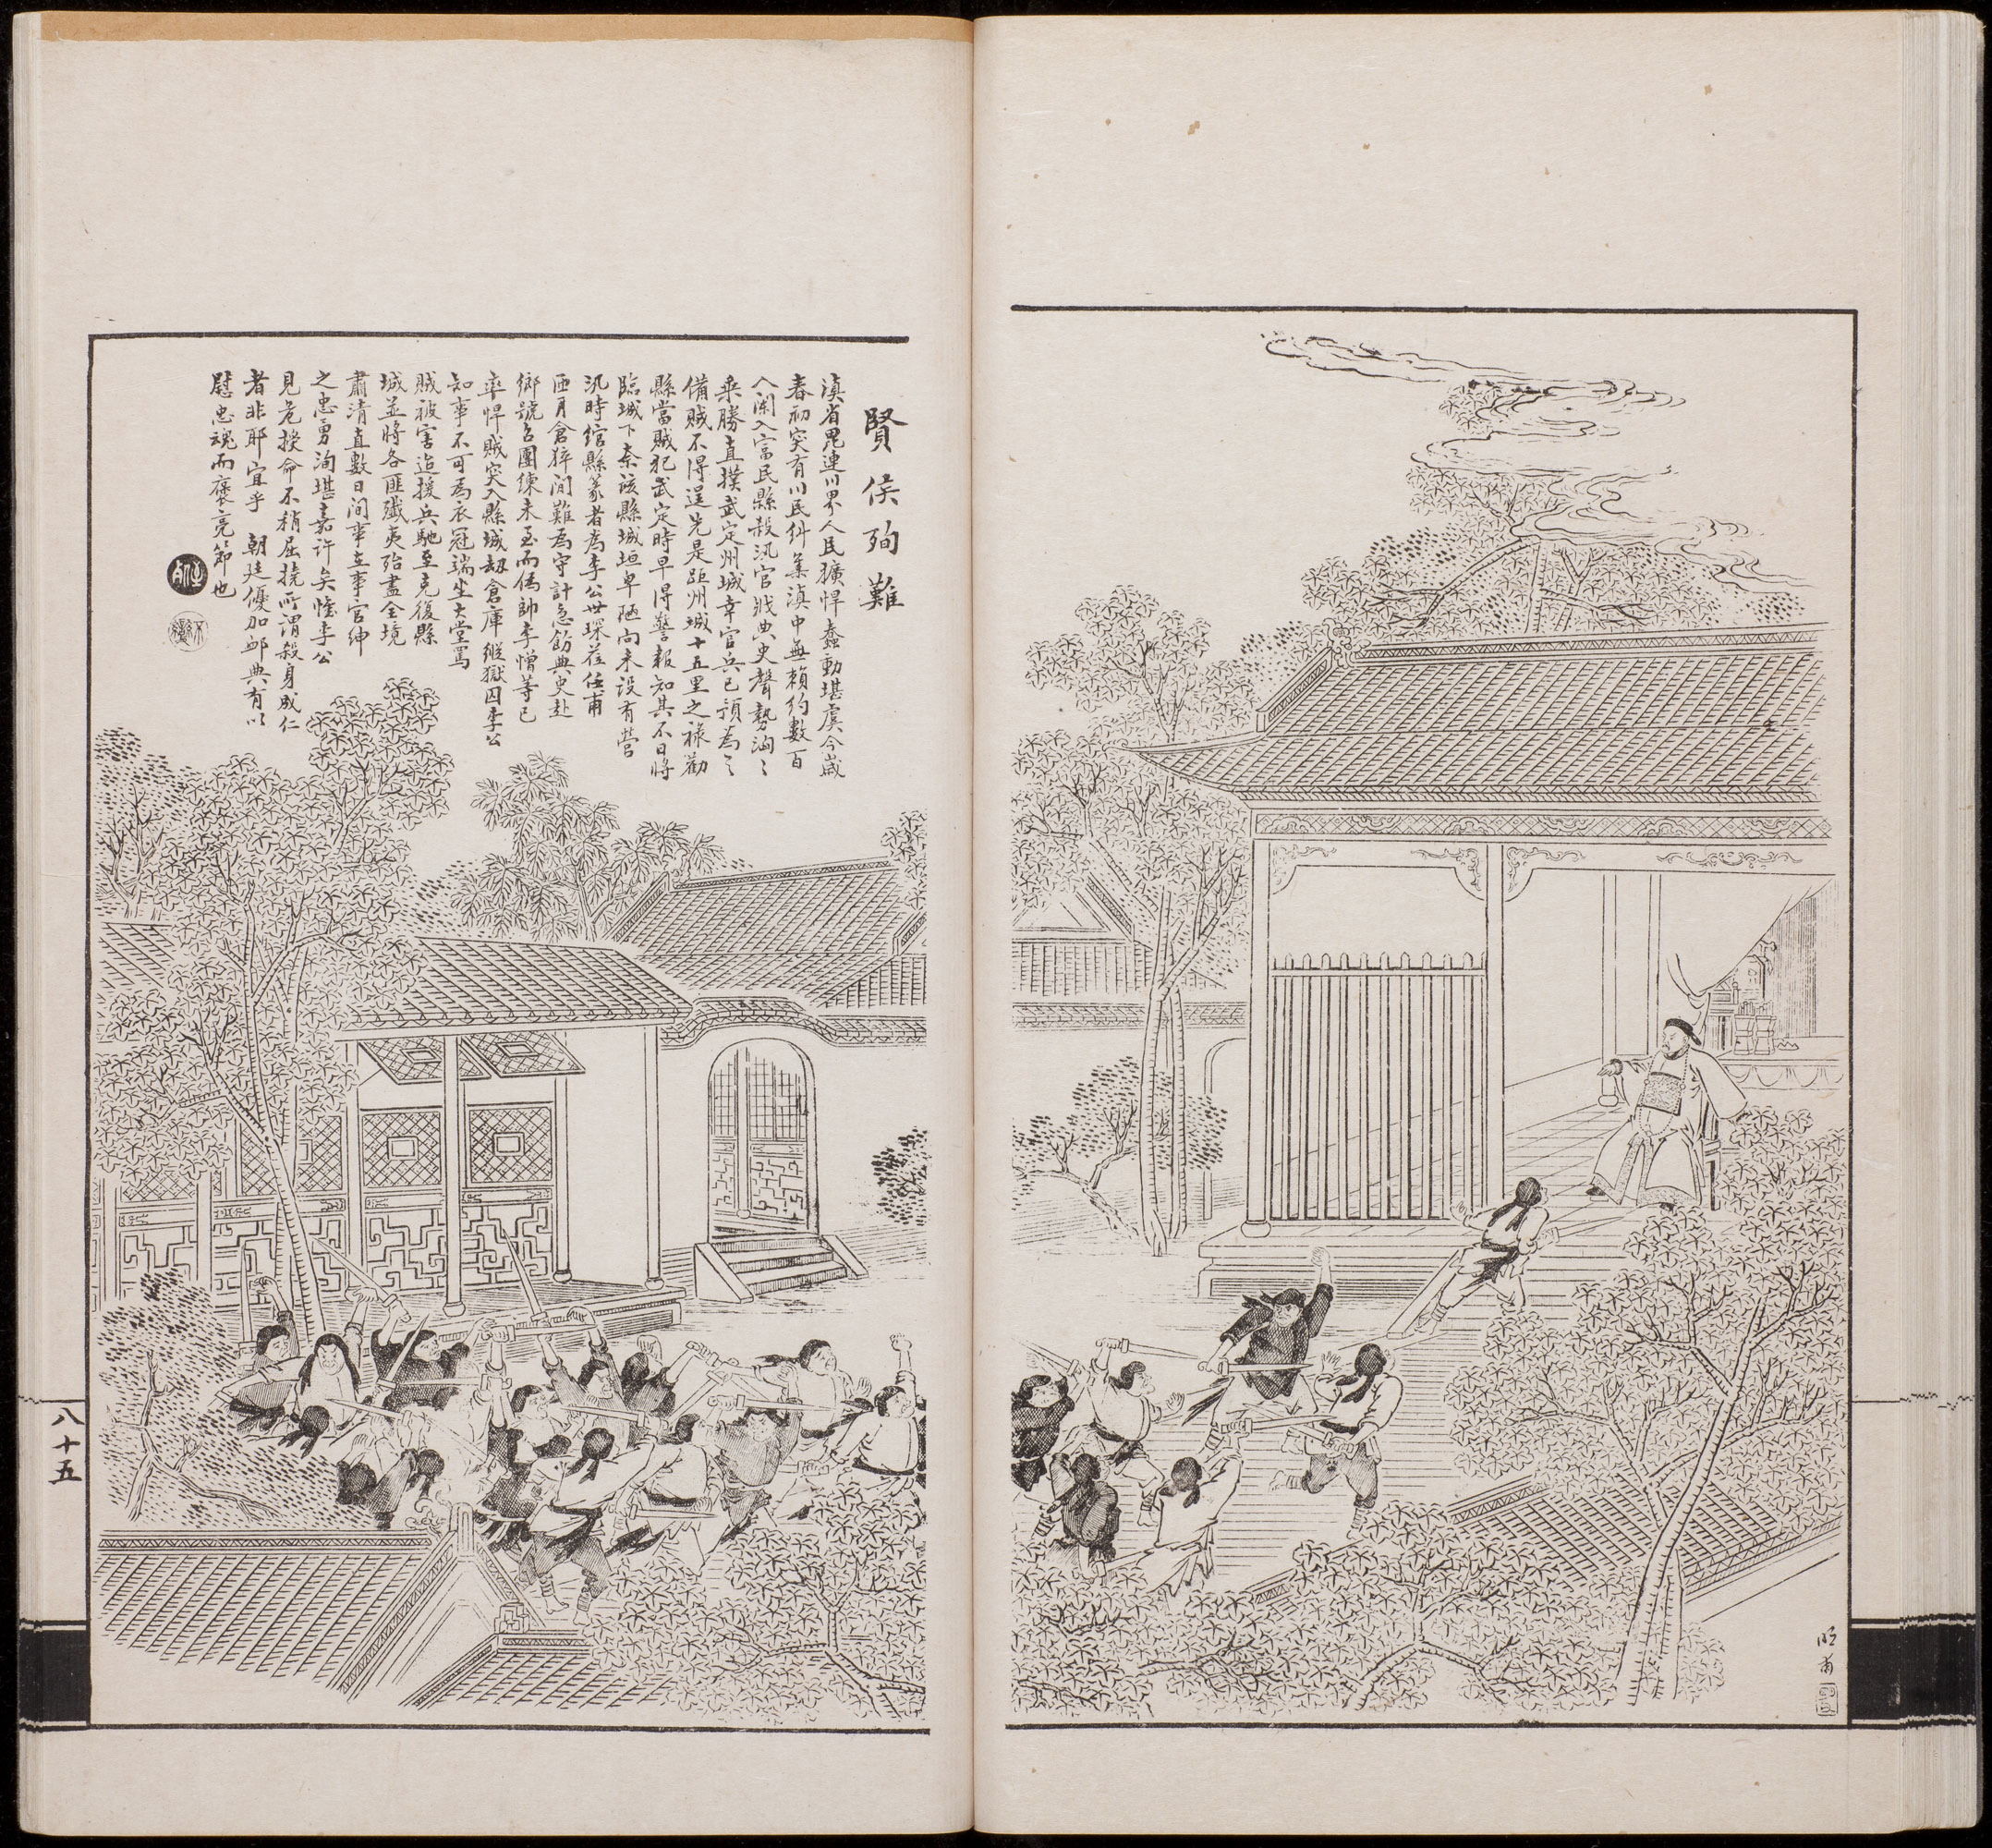 賢侯殉難
滇省毘連川界人民獷悍蠢動堪虞今歲
春初突有川民糾集滇中無賴約數百
人闌入富民縣殺汛官戕典史聲勢洶〻
乘勝直撲武定州城幸官兵已預為之
備賊不得逞先是距州城十五里之祿勸
縣當賊犯武定時早得警報知其不日將
臨城下奈該縣城垣卑陋向未設有營
汛時綰縣篆者為李公世琛蒞任甫
匝月倉猝間難為守計急飭典史赴
鄉號召團練未至而偽帥李憎等已
率悍賊突入縣城劫倉庫縱獄囚李公
知事不可為衣冠端坐大堂罵
賊被害迨援兵馳至克復縣
城並將各匪殲夷殆盡全境
肅清直數日間事在事官紳
之忠勇洵堪嘉許矣惟李公
見危授命不稍屈撓所謂殺身成仁
者非耶宜乎 朝廷優加卹典有以
慰忠魂而褒亮節也
八十五
明甫